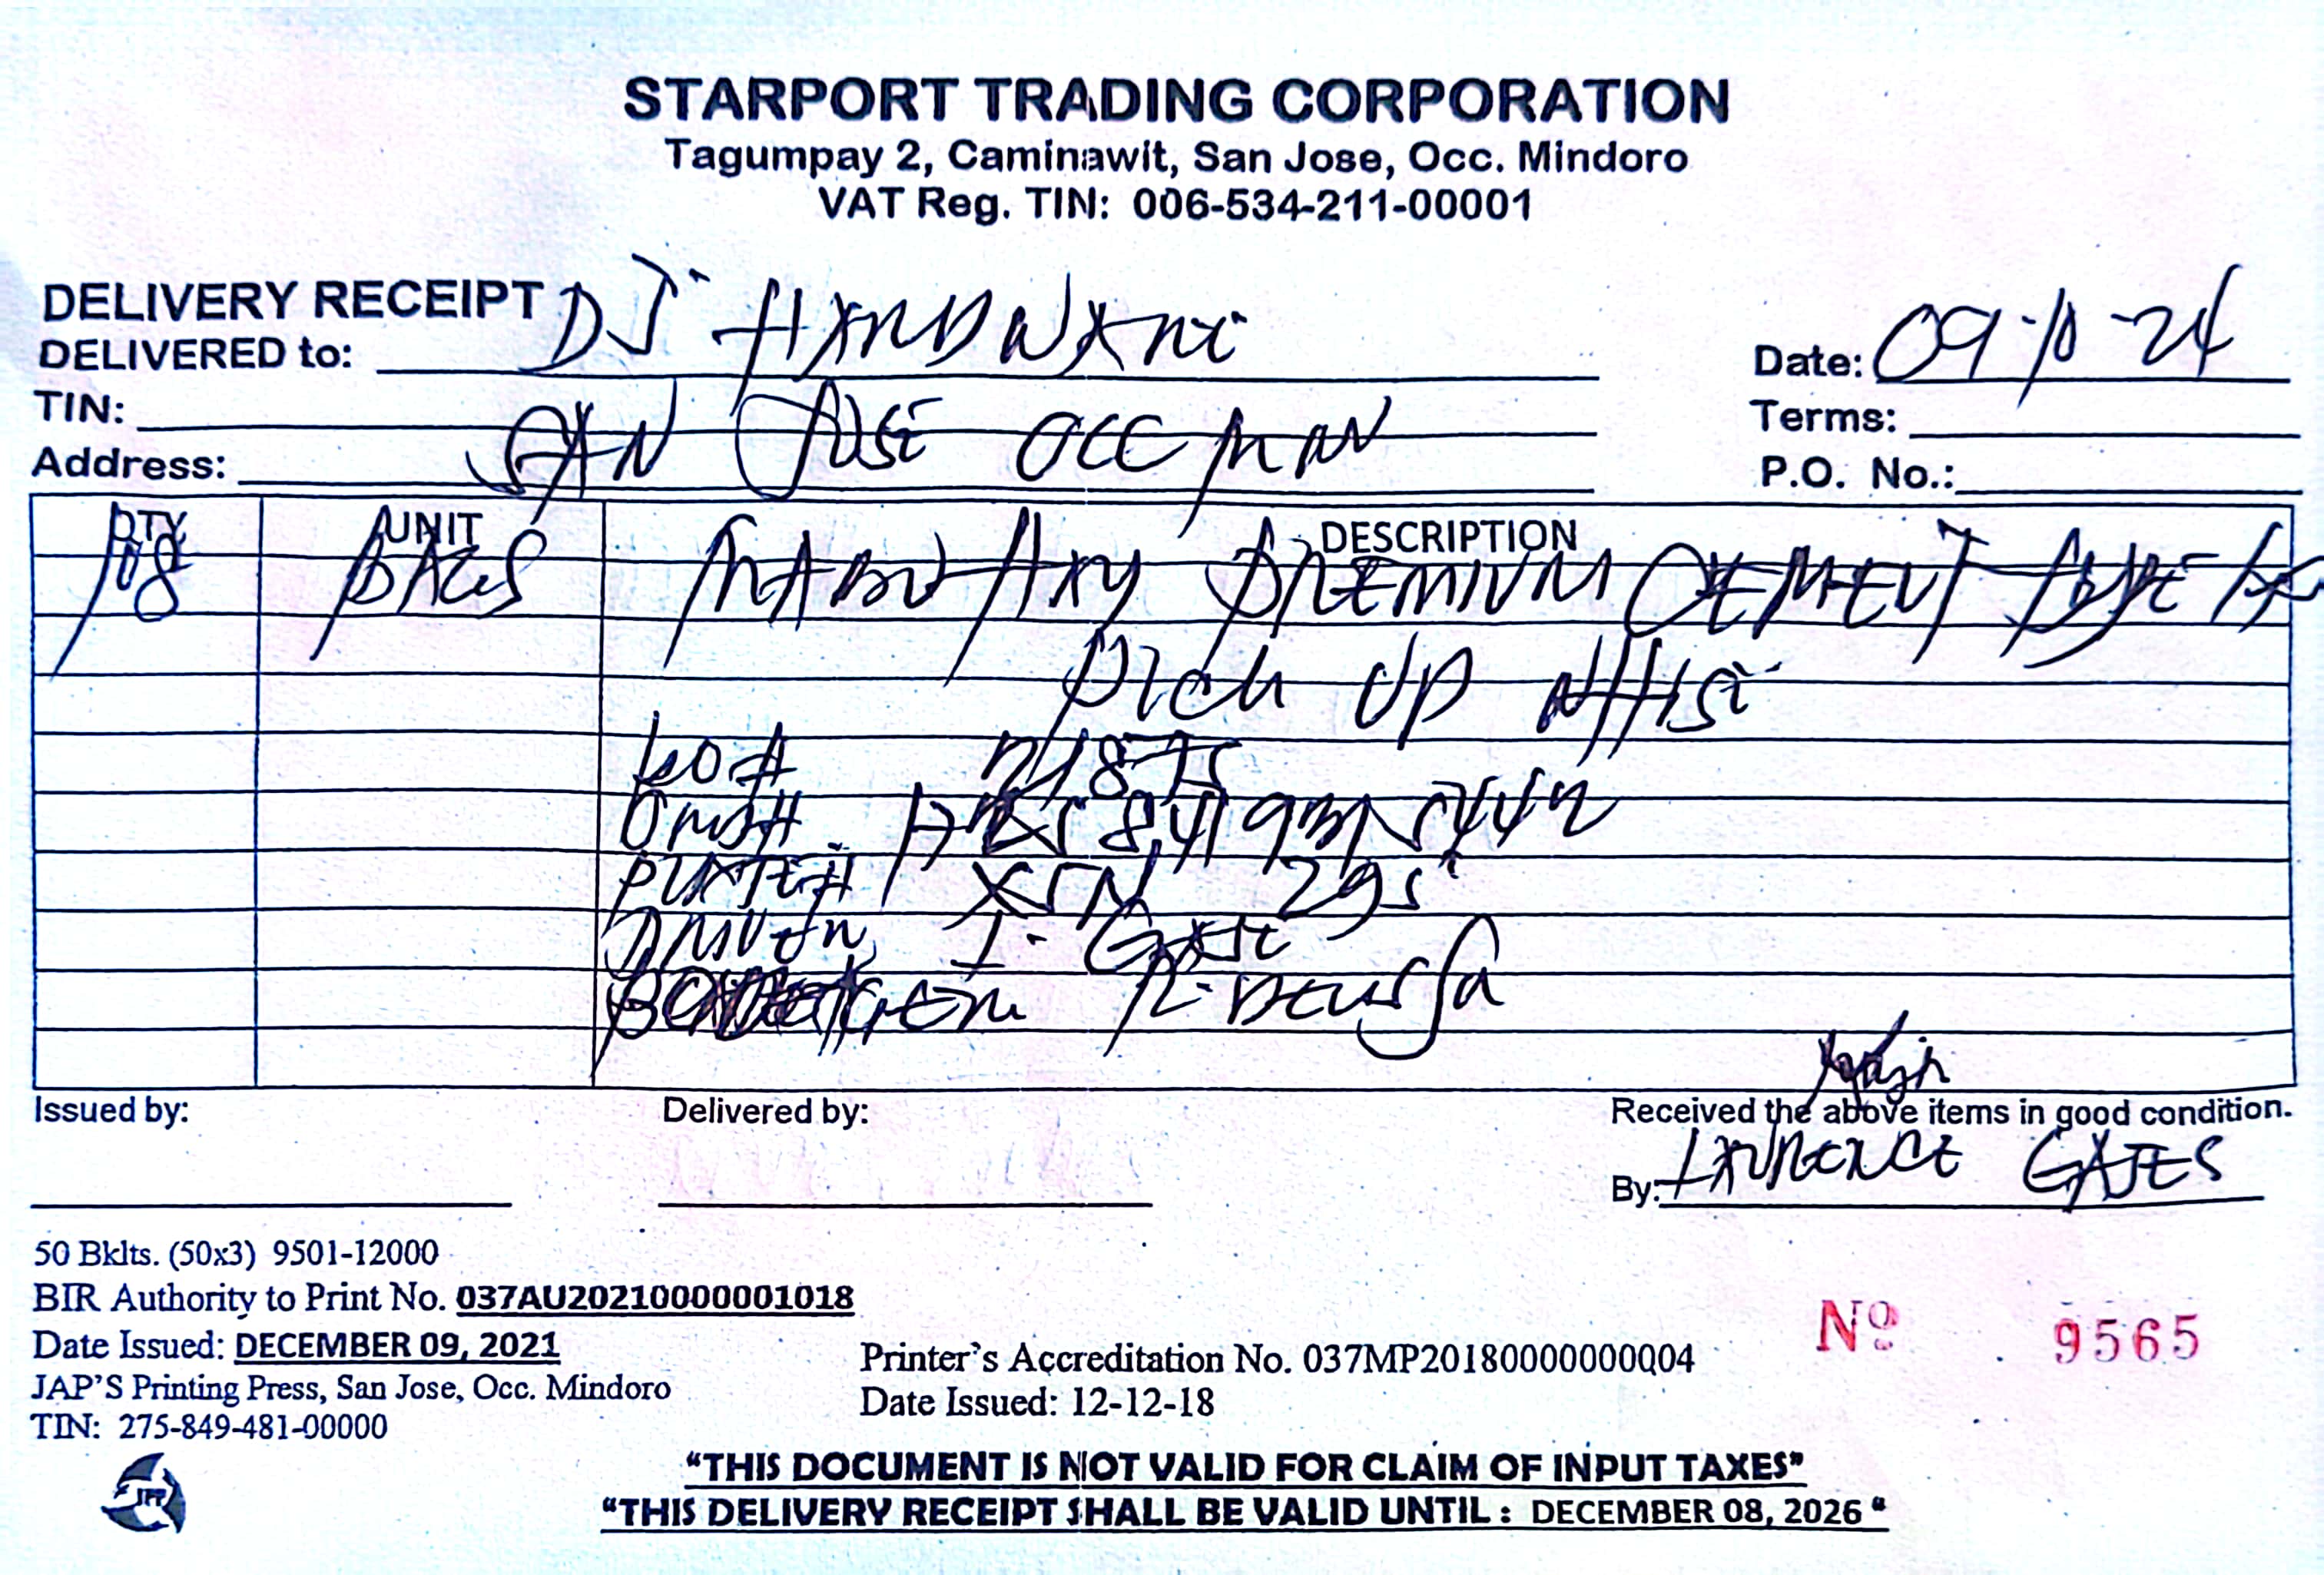 STARPORT TRADING CORPORATION
Tagumpay 2, Caminawit, San Jose, Occ. Mindoro
VAT Reg. TIN: 006-534-211-00001
DELIVERY RECEIPT
DELIVERED to: DJ HARDWARE
Date: 09-10-24
TIN:
Terms:
Address: SAN JOSE OCC MIN
P.O. No.:
QTY UNIT DESCRIPTION
108 BAGS PREMIUM CEMENT TYPE
PICK UP WHSE
#
#
PLATE# 295
DRIVER
R.
Issued by:
Delivered by:
Received the above items in good condition.
By: LAURENCE GATES
50 Bklts. (50x3) 9501-12000
BIR Authority to Print No. 037AU20210000001018
Date Issued: DECEMBER 09, 2021
JAP'S Printing Press, San Jose, Occ. Mindoro
TIN: 275-849-481-00000
Printer's Accreditation No. 037MP20180000000004
Date Issued: 12-12-18
Nº 9565
JPP
“THIS DOCUMENT IS NOT VALID FOR CLAIM OF INPUT TAXES”
“THIS DELIVERY RECEIPT SHALL BE VALID UNTIL : DECEMBER 08, 2026 “